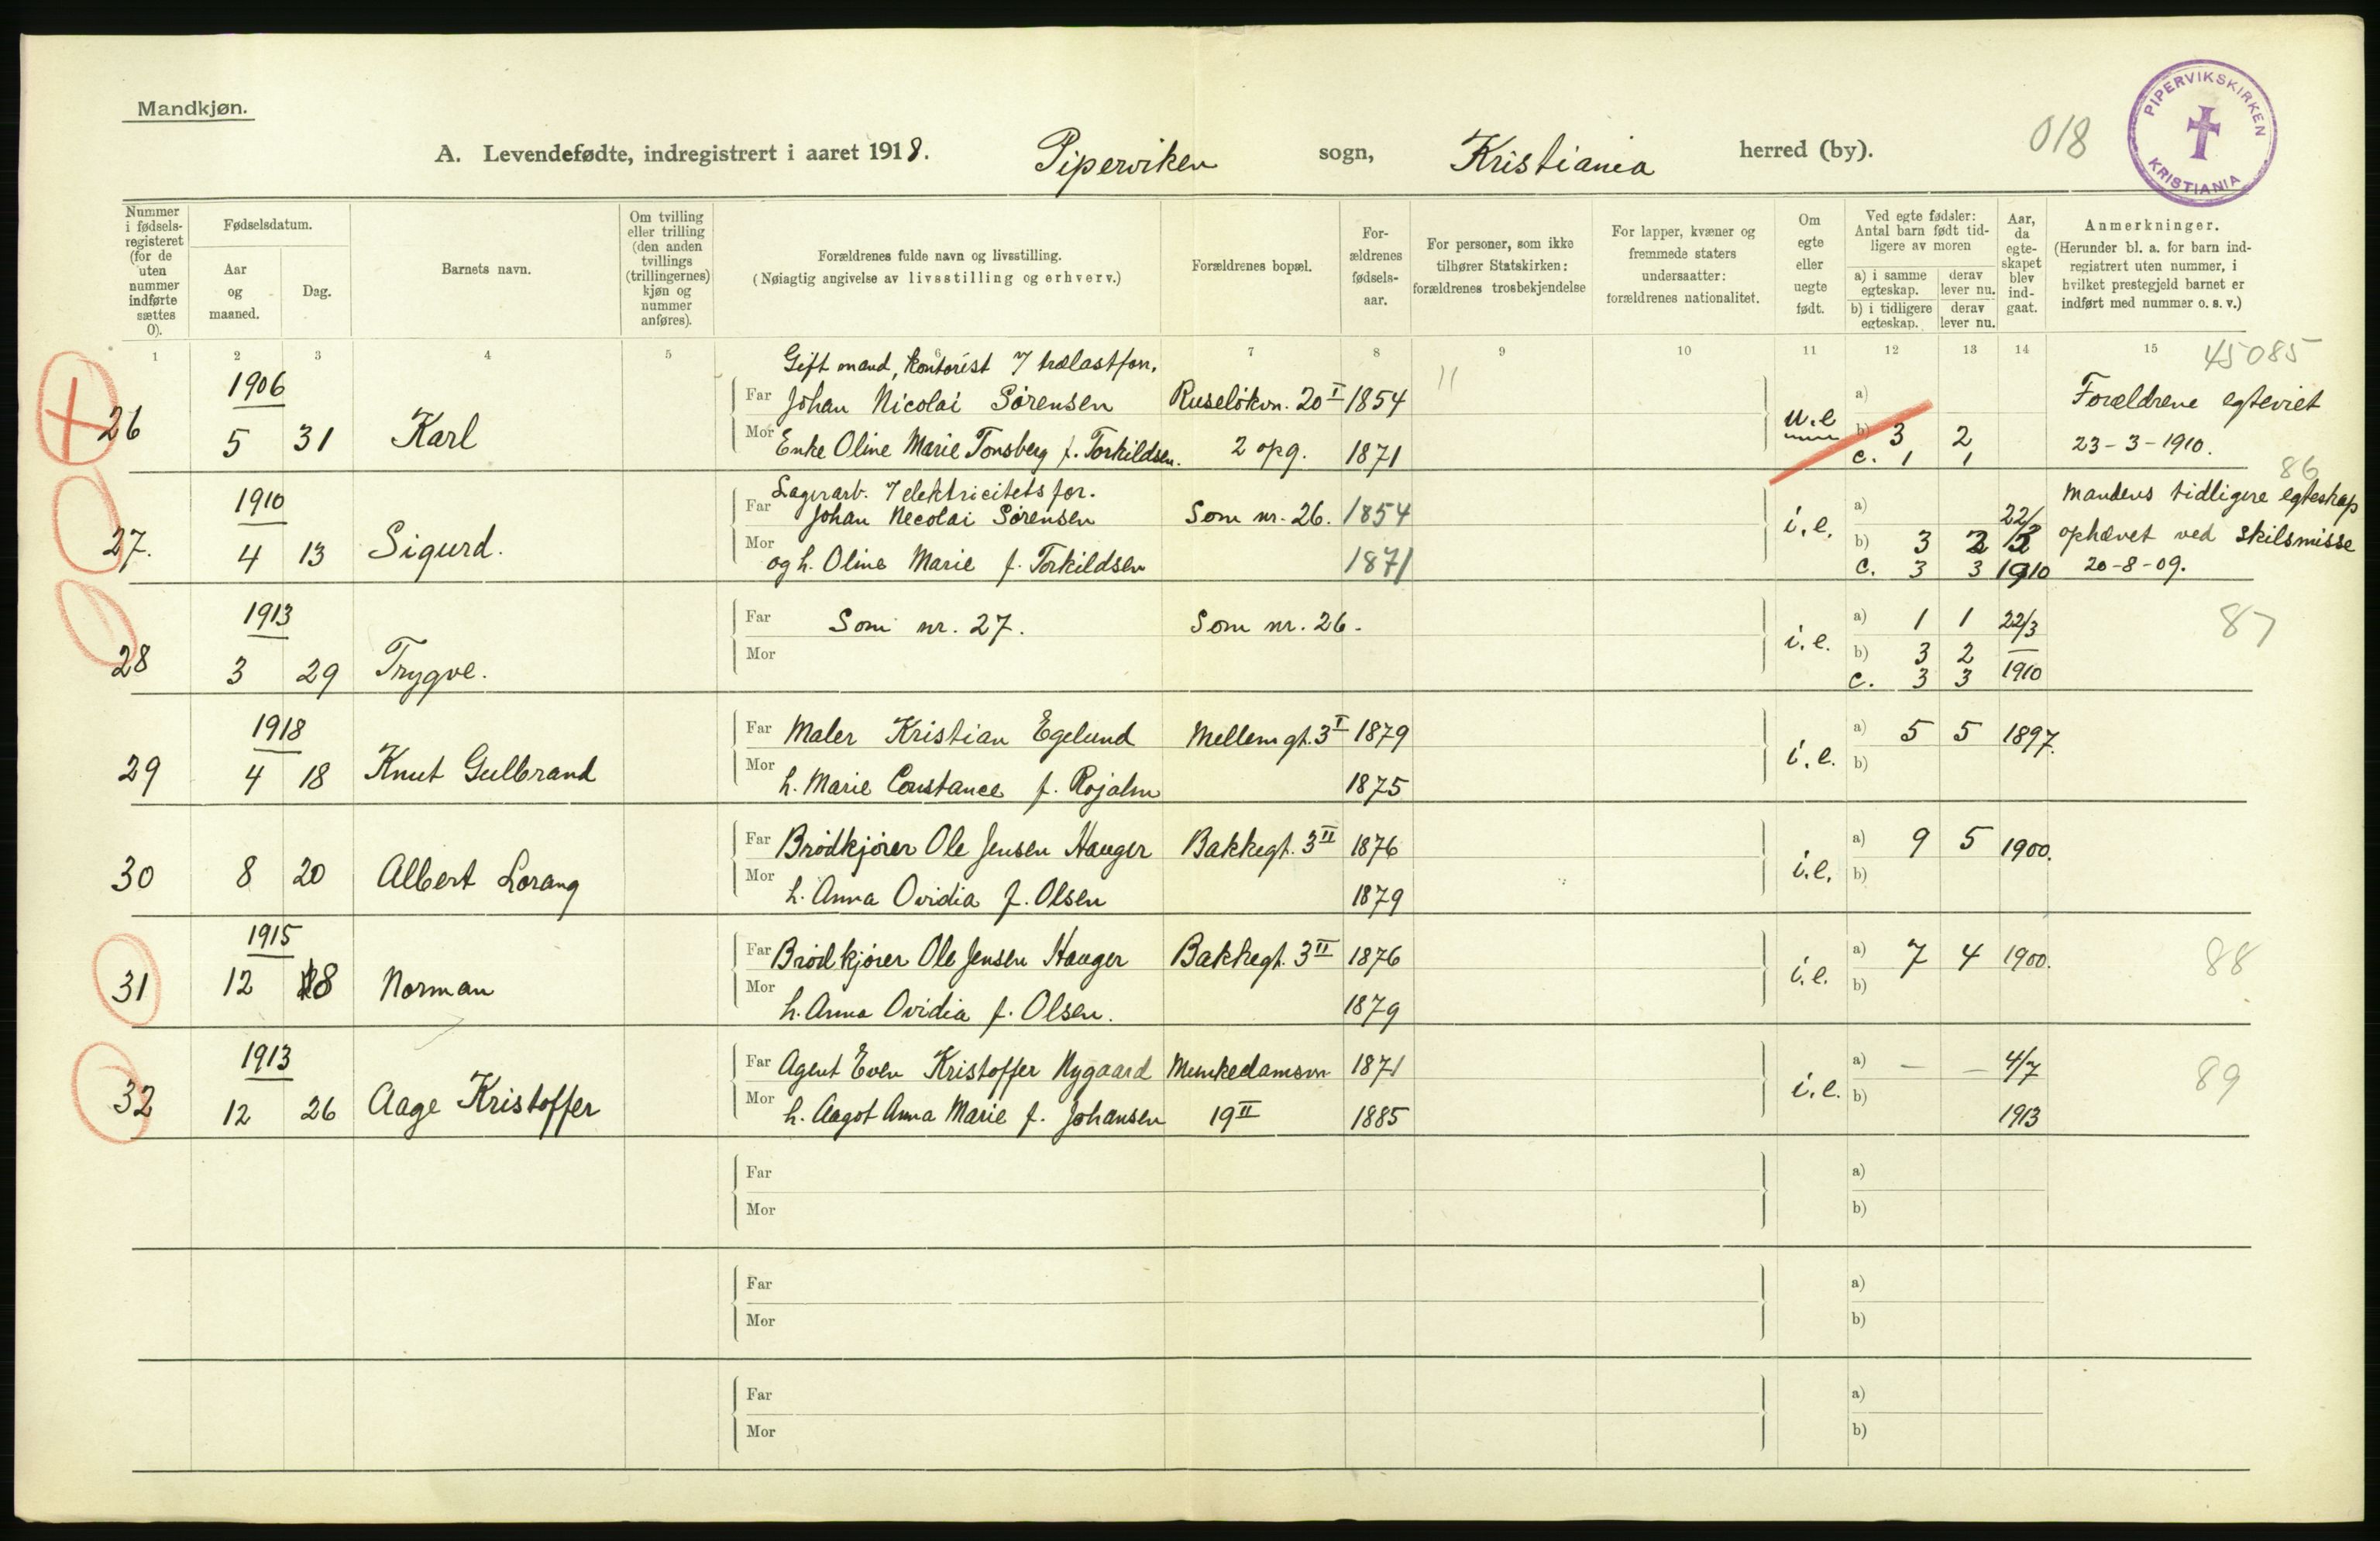 Mandkjøn.
A. Levendefødte, indregistrert i aaret 1918. Piperviken sogn, Kristiania herred (by). 018
PIPERVIKSKIRKEN KRISTIANIA
Nummer i fødsels-registeret (for de uten nummer indførte sættes 0).
Fødselsdatum.
Aar og maaned.
Dag.
Barnets navn.
Om tvilling eller trilling (den anden tvillings (trillingernes) kjøn og nummer anføres).
Forældrenes fulde navn og livsstilling.
(Nøiagtig angivelse av livsstilling og erhverv.)
Forældrenes bopæl.
For-ældrenes fødsels-aar.
For personer, som ikke tilhører Statskirken: forældrenes trosbekjendelse
For lapper, kvæner og fremmede staters undersaatter: forældrenes nationalitet.
Om egte eller uegte født.
Ved egte fødsler: Antal barn født tid-ligere av moren
a) i samme egteskap.
derav lever nu.
b) i tidligere egteskap.
derav lever nu.
Aar, da egte-skapet blev ind-gaat.
Anmerkninger.
(Herunder bl. a. for barn ind-registrert uten nummer, i hvilket prestegjeld barnet er indført med nummer o. s. v.)
1 2 3 4 5 6 7 8 9 10 11 12 13 14 15
45085
Gift mand, kontorist 7 trælastforr.
1906
26 5 31 Karl
Far Johan Nicolai Sørensen Ruseløkvn. 20 I 1854 11
Mor Enke Oline Marie Tonsberg f. Torkildsen. 2 opg. 1871
u.e a)
b) 3 2
c. 1 1
Forældrene egteviet
23-3-1910.
86
Lagerarb. 7 elektricitetsfor.
1910
27. 4 13 Sigurd.
Far Johan Necolai Sørensen Som nr. 26. 1854
Mor og h. Oline Marie f. Torkildsen 1871
i.e. a) 22/
b) 3 2 3
c. 3 3 1910
Mandens tidligere egteskap
ophævet ved skilsmisse
20-8-09.
1913
28 3 29 Trygve.
Far Som nr. 27. Som nr. 26.
Mor
i.e. a) 1 1 22/3
b) 3 2
c. 3 3 1910
87
1918
29 4 18 Knut Gulbrand
Far Maler Kristian Egelund Mellemgt. 3 I 1879
Mor h. Marie Constance f. Rojalm 1875
i.e. a) 5 5 1897.
b)
30 8 20 Albert Lorang
Far Brødkjører Ole Jensen Hauger Bakkegt. 3 II 1876
Mor h. Anna Ovidia f. Olsen 1879
i.e. a) 9 5 1900.
b)
1915
31 12 28 Norman
Far Brødkjører Ole Jensen Hauger Bakkegt. 3 II 1876
Mor h. Anna Ovidia f. Olsen. 1879
i.e. a) 7 4 1900.
b)
88
1913
32 12 26 Aage Kristoffer
Far Agent Even Kristoffer Nygaard Munkedamsvn 1871
Mor h. Aagot Anna Marie f. Johansen 19 II 1885
i.e. a) — — 4/7
b) 1913
89
Far a)
Mor b)
Far a)
Mor b)
Far a)
Mor b)